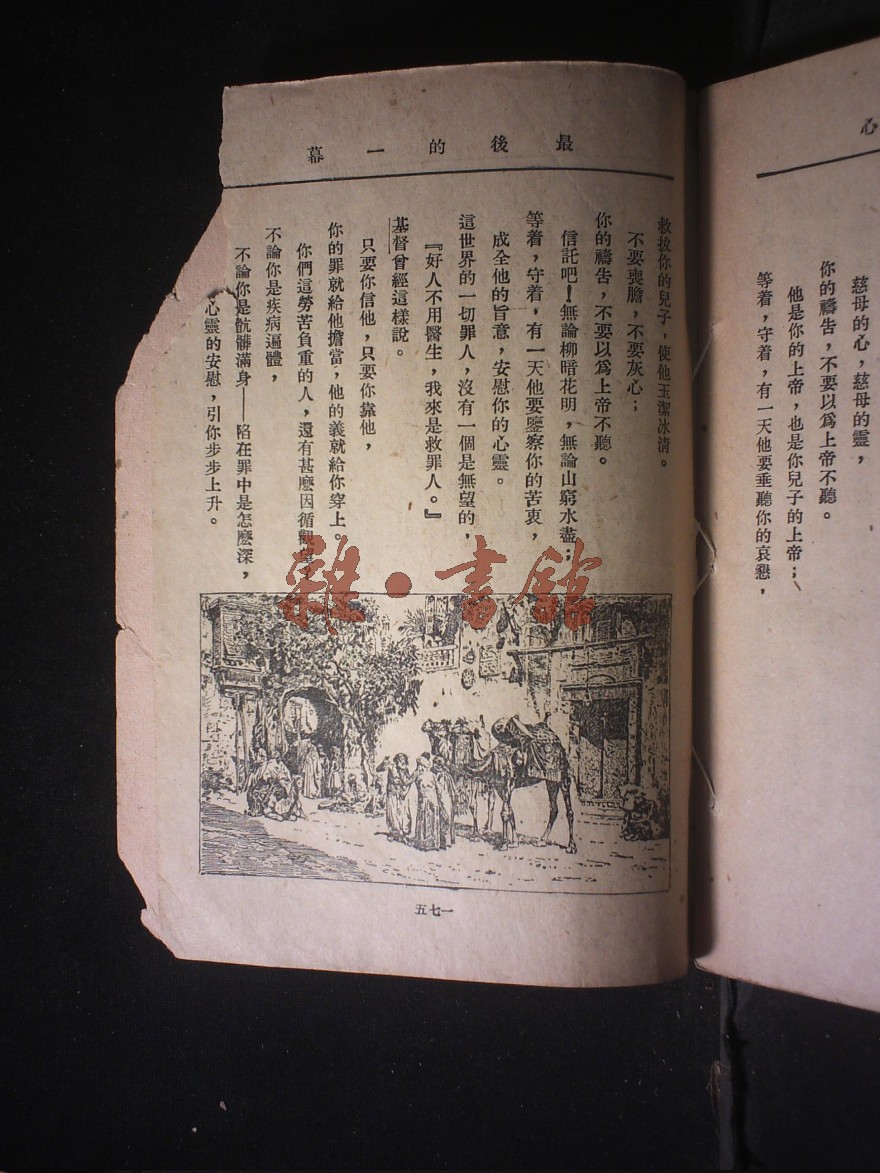 心
慈母的心，慈母的靈，
你的禱告，不要以爲上帝不聽。
他是你的上帝，也是你兒子的上帝；
等着，守着，有一天他要垂聽你的哀懇，
最後的一幕
救拔你的兒子，使他玉潔冰清。
不要喪膽，不要灰心；
你的禱告，不要以爲上帝不聽。
信託吧！無論柳暗花明，無論山窮水盡；
等着，守着，有一天他要鑒察你的苦衷，
成全他的旨意，安慰你的心靈。
這世界的一切罪人，沒有一個是無望的，
『好人不用醫生，我來是救罪人。』
基督曾經這樣說。
只要你信他，只要你靠他，
你的罪就給他擔當，他的義就給你穿上。
你們這勞苦負重的人，還有甚麽因循觀望，
不論你是疾病遍體，
不論你是骯髒滿身——陷在罪中是怎麽深，
心靈的安慰，引你步步上升。
一七五
雜·書館